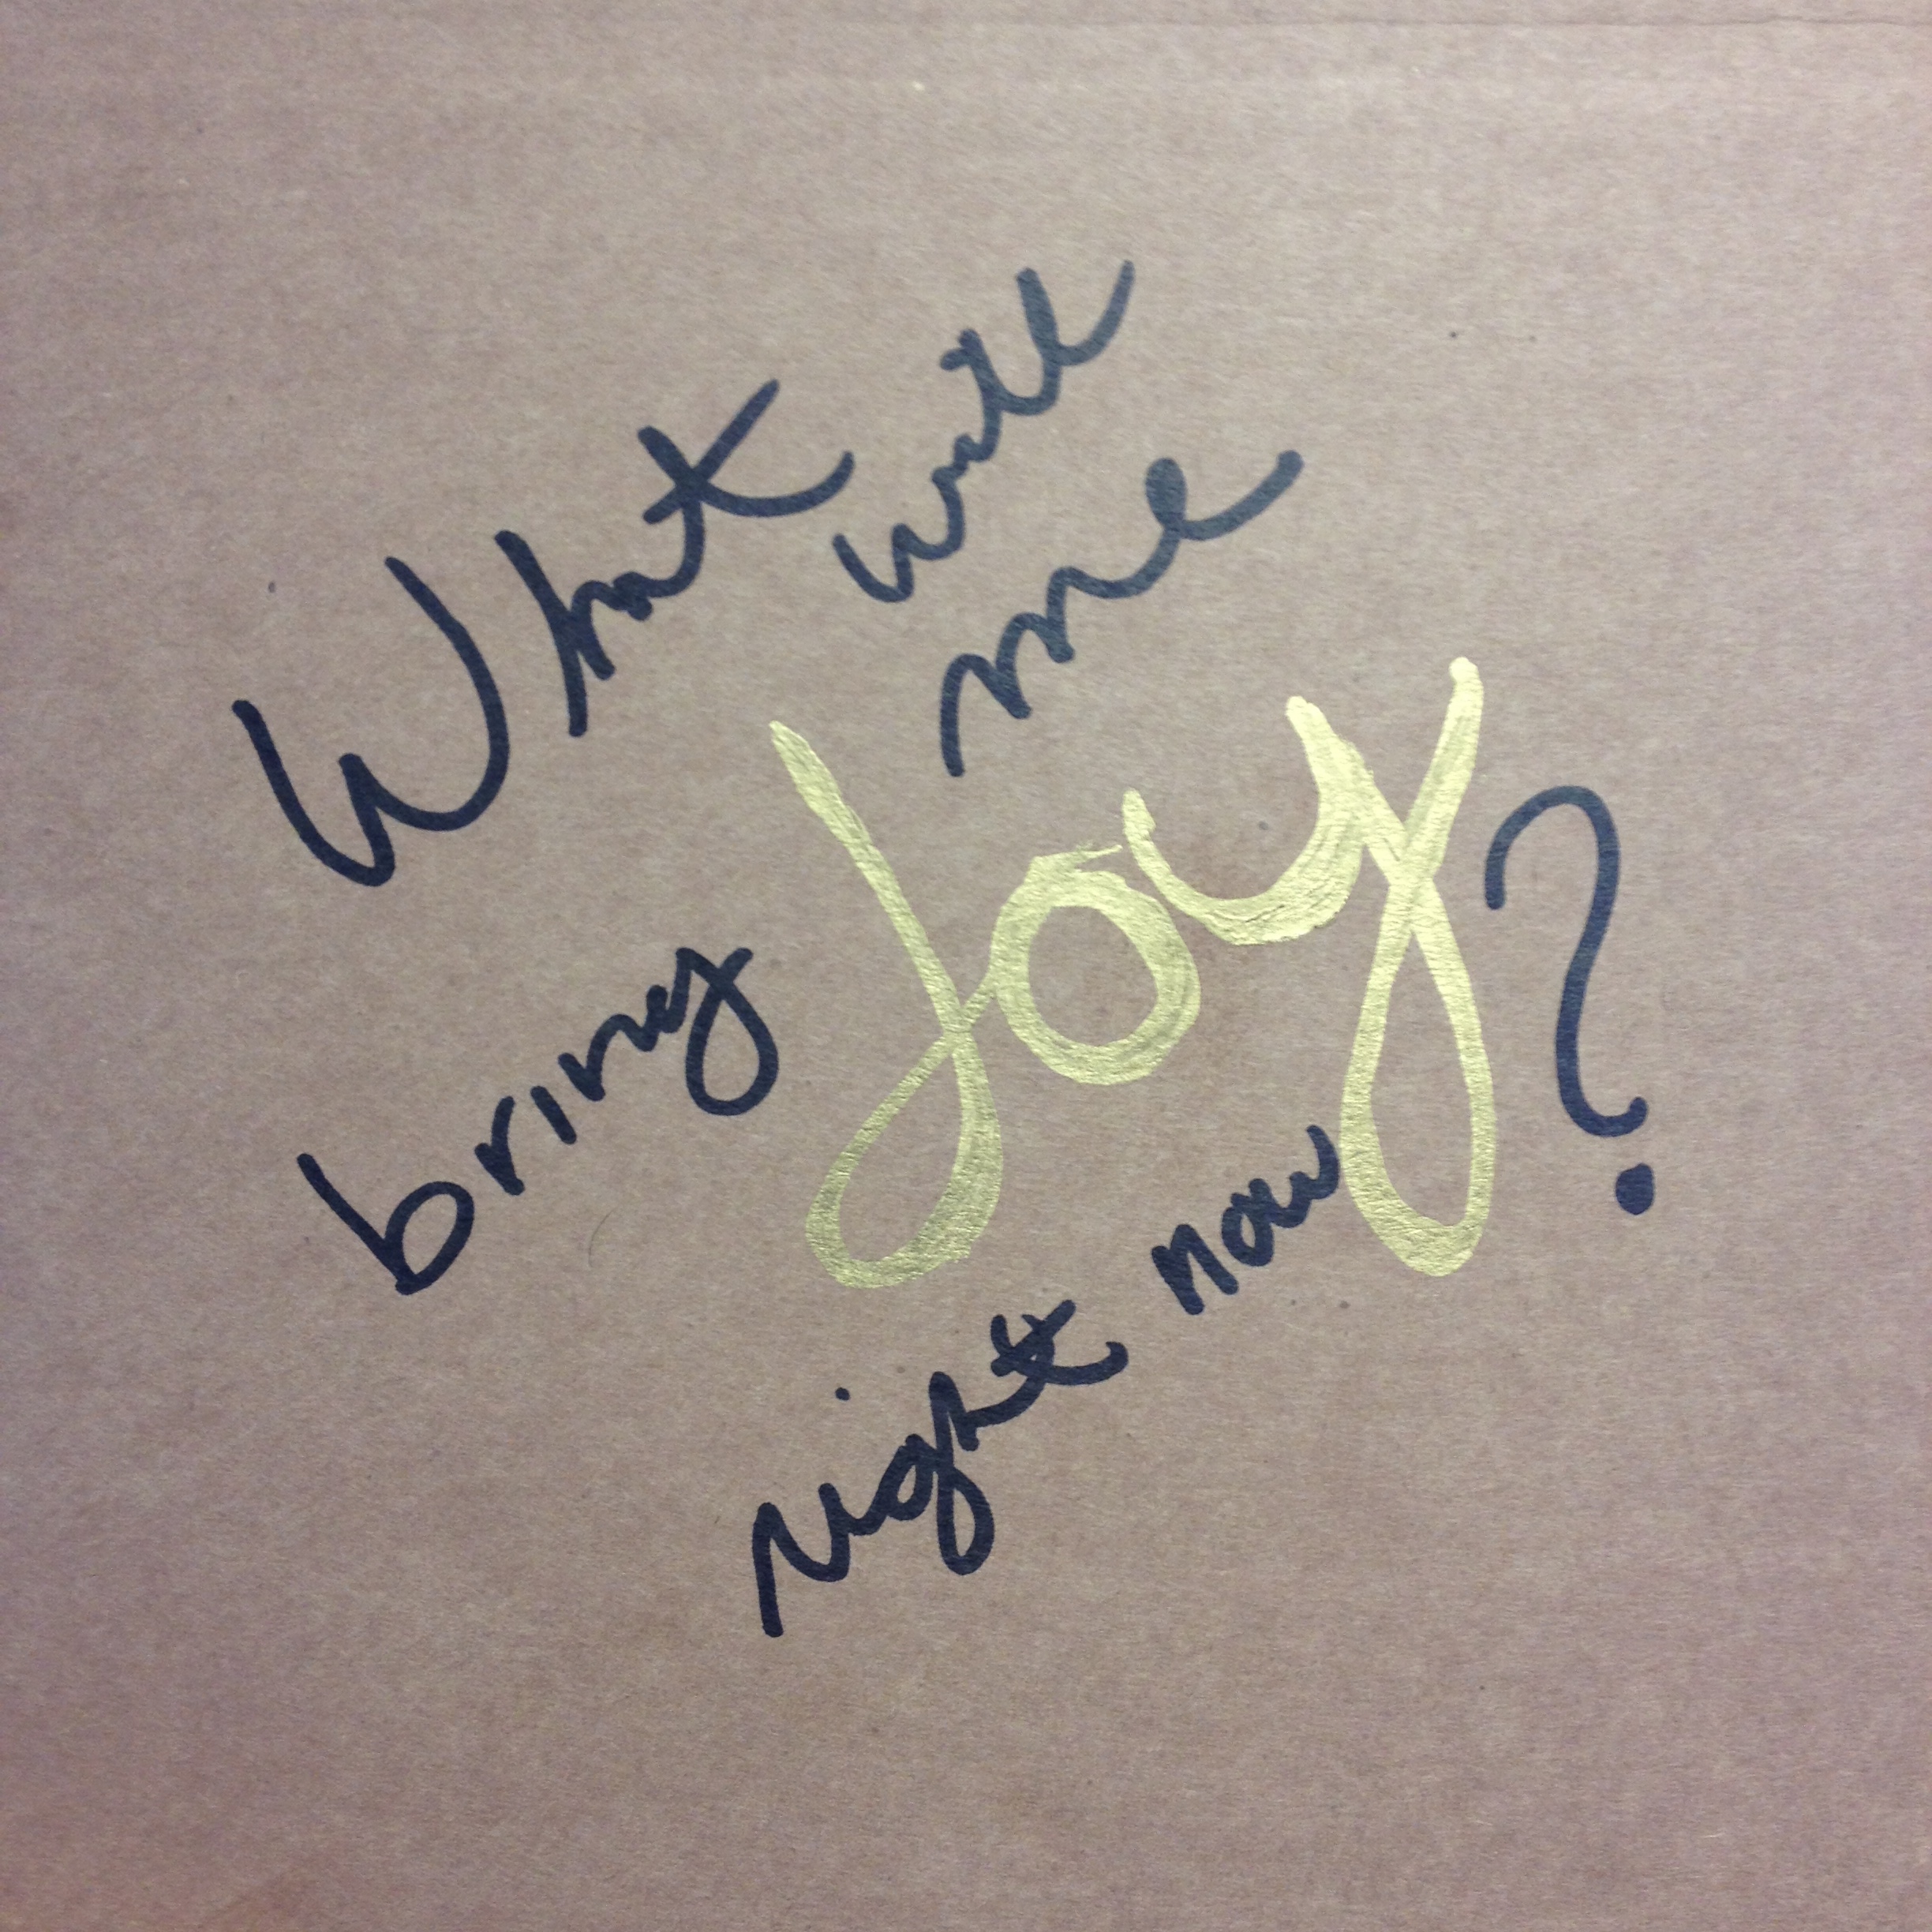 What will
bring me
Joy?
right now